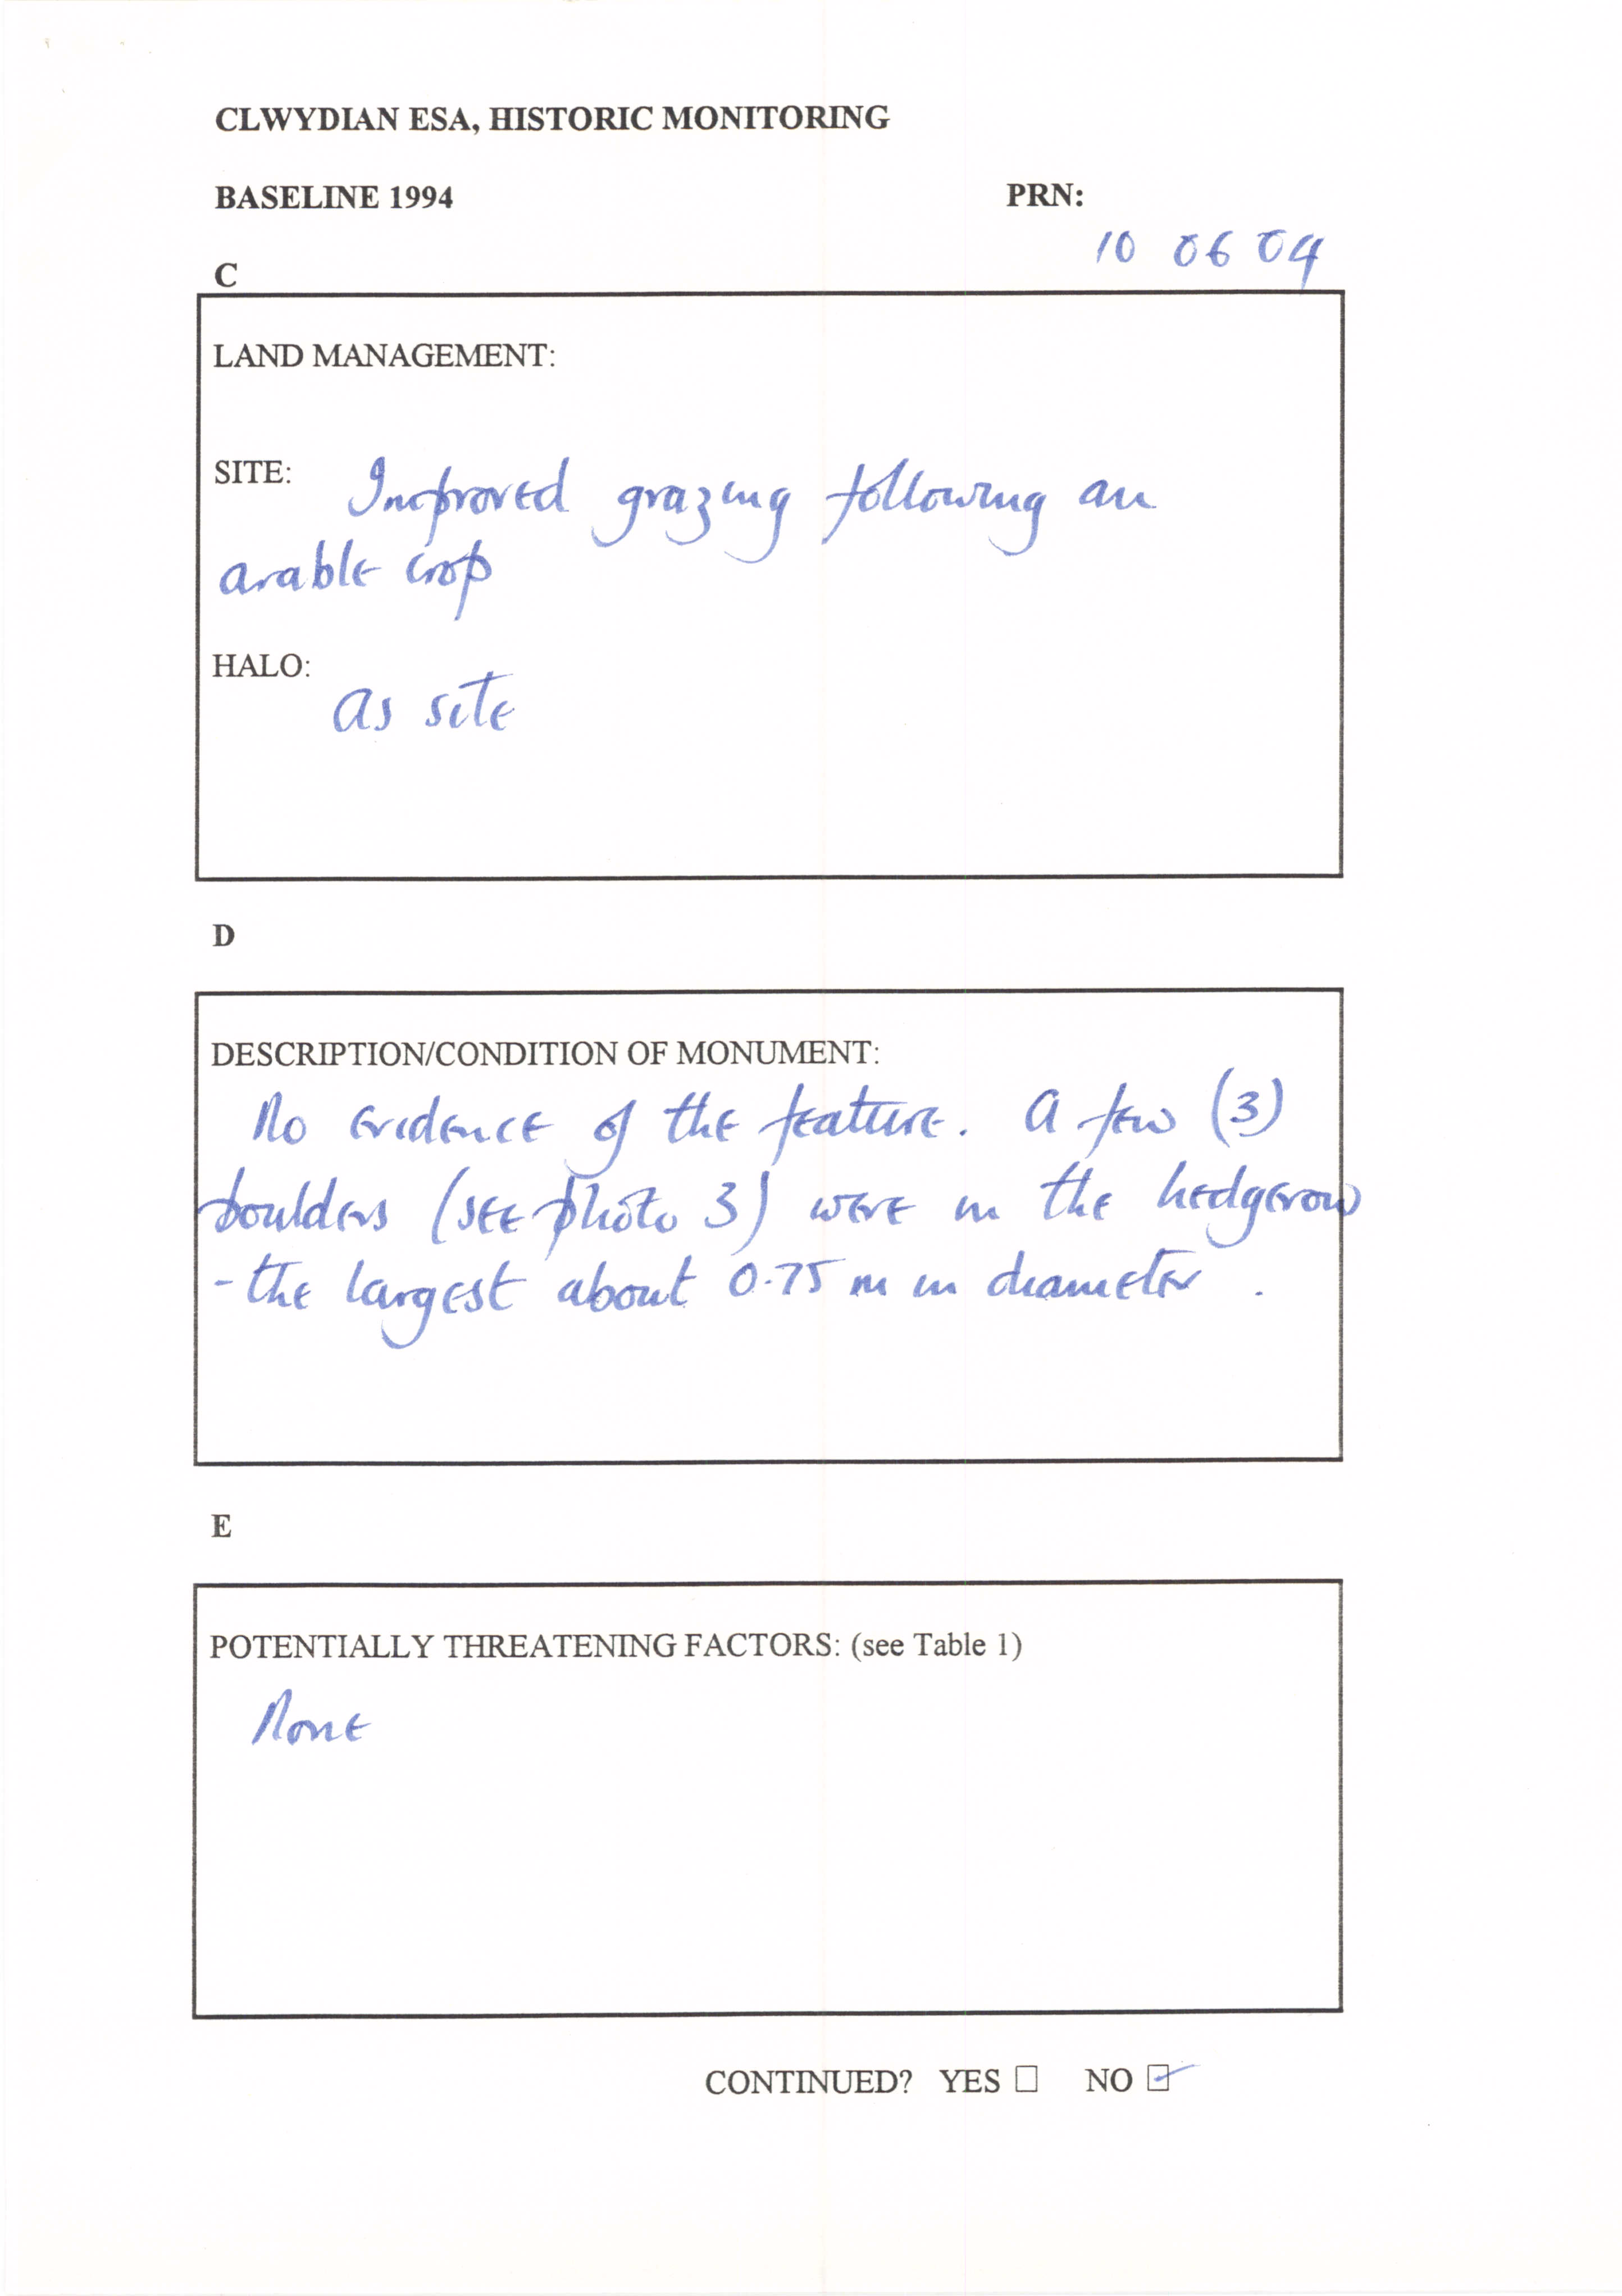 CLWYDIAN ESA, HISTORIC MONITORING
BASELINE 1994 PRN:
10 06 04
C
LAND MANAGEMENT:
SITE: Improved grazing following an
arable crop
HALO:
as site
D
DESCRIPTION/CONDITION OF MONUMENT:
No evidence of the feature. A few (3)
boulders (see photo 3) were in the hedgerow
- the largest about 0.75 m in diameter.
E
POTENTIALLY THREATENING FACTORS: (see Table 1)
None
CONTINUED? YES ☐ NO ☑